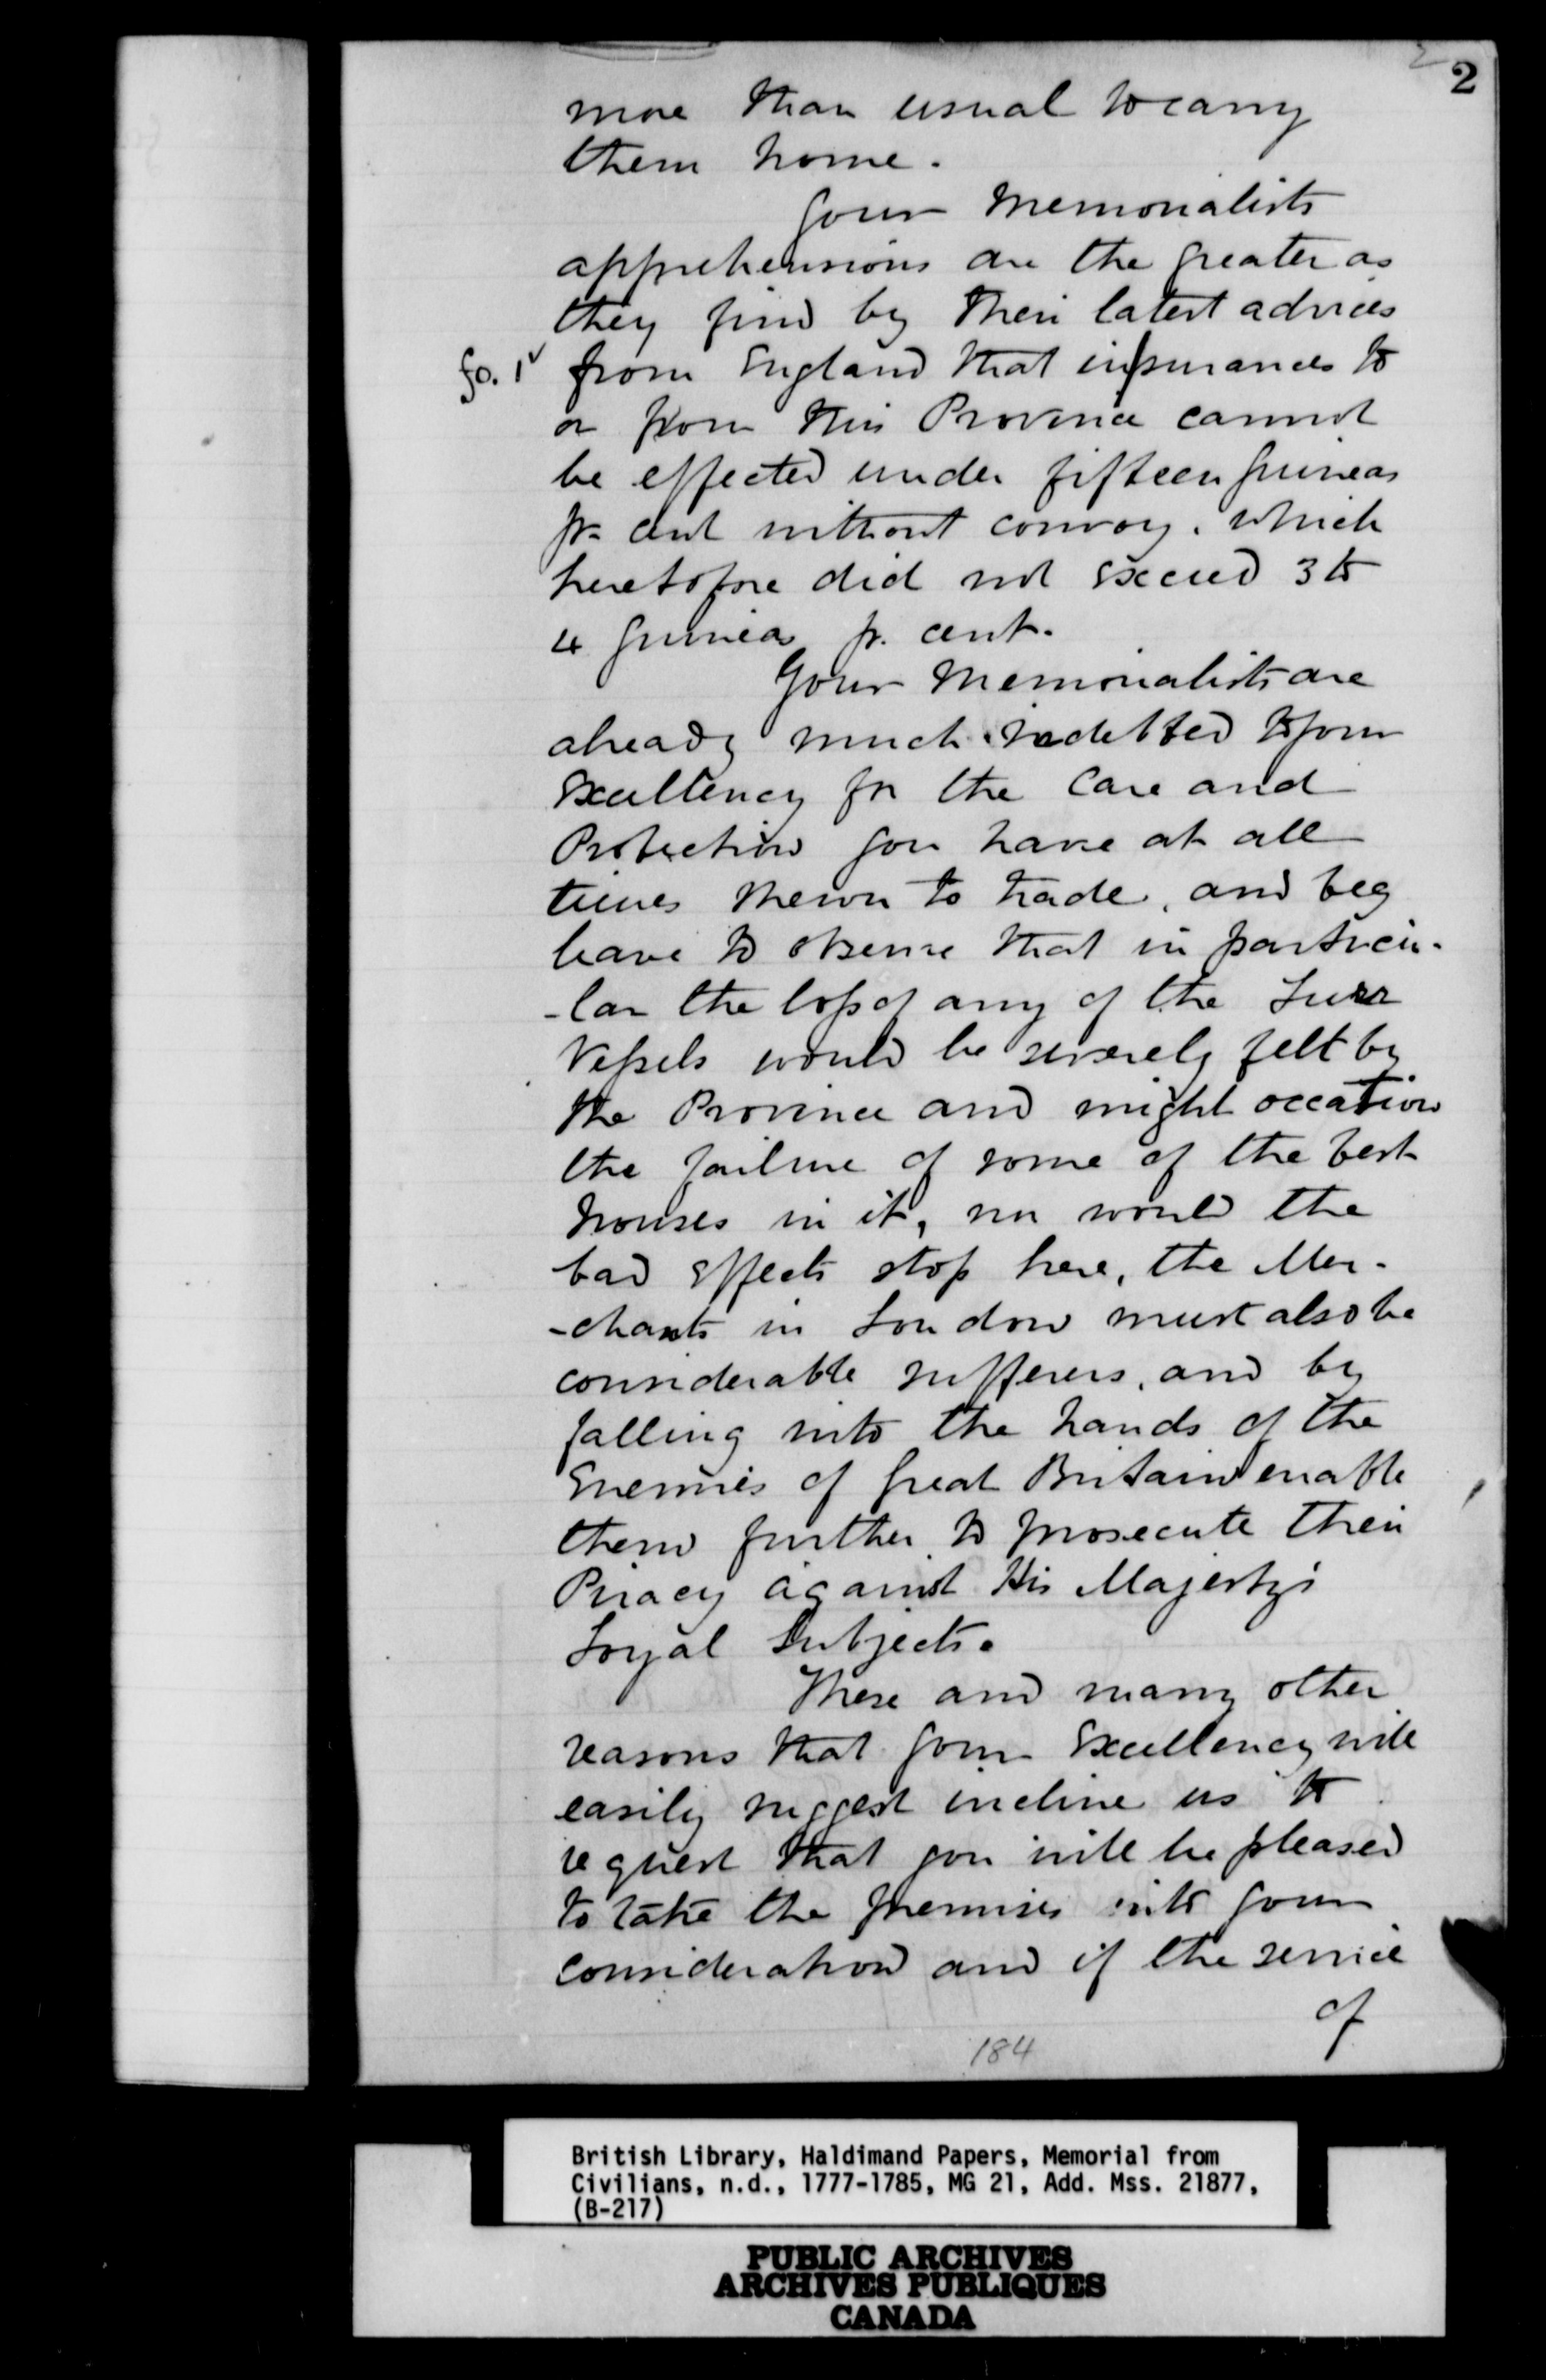 2
2
more than usual to carry
them home.
Your Memorialists
apprehensions are the greater as
they find by their latest advices
fo. 1v from England that insurances to
or from this Province cannot
be effected under fifteen guineas
pr. cent without convoy. which
heretofore did not Exceed 3 to
4 guineas pr. cent.
Your Memorialists are
already much indebted to your
Excellency for the Care and
Protection you have at all
times shewn to trade, and beg
leave to observe that in particu-
-lar the loss of any of the Furr
Vessels would be severely felt by
the Province and might occation
the failure of some of the best
houses in it, nor would the
bad Effects stop here, the Mer-
-chants in London must also be
considerable sufferers, and by
falling into the hands of the
Enemies of Great Britain enable
them further to prosecute their
Piracy against His Majesty's
Loyal Subjects.
These and many other
reasons that your Excellency will
easily suggest incline us to
request that you will be pleased
to take the premises into your
consideration and if the service
of
184
British Library, Haldimand Papers, Memorial from
Civilians, n.d., 1777-1785, MG 21, Add. Mss. 21877,
(B-217)
PUBLIC ARCHIVES
ARCHIVES PUBLIQUES
CANADA